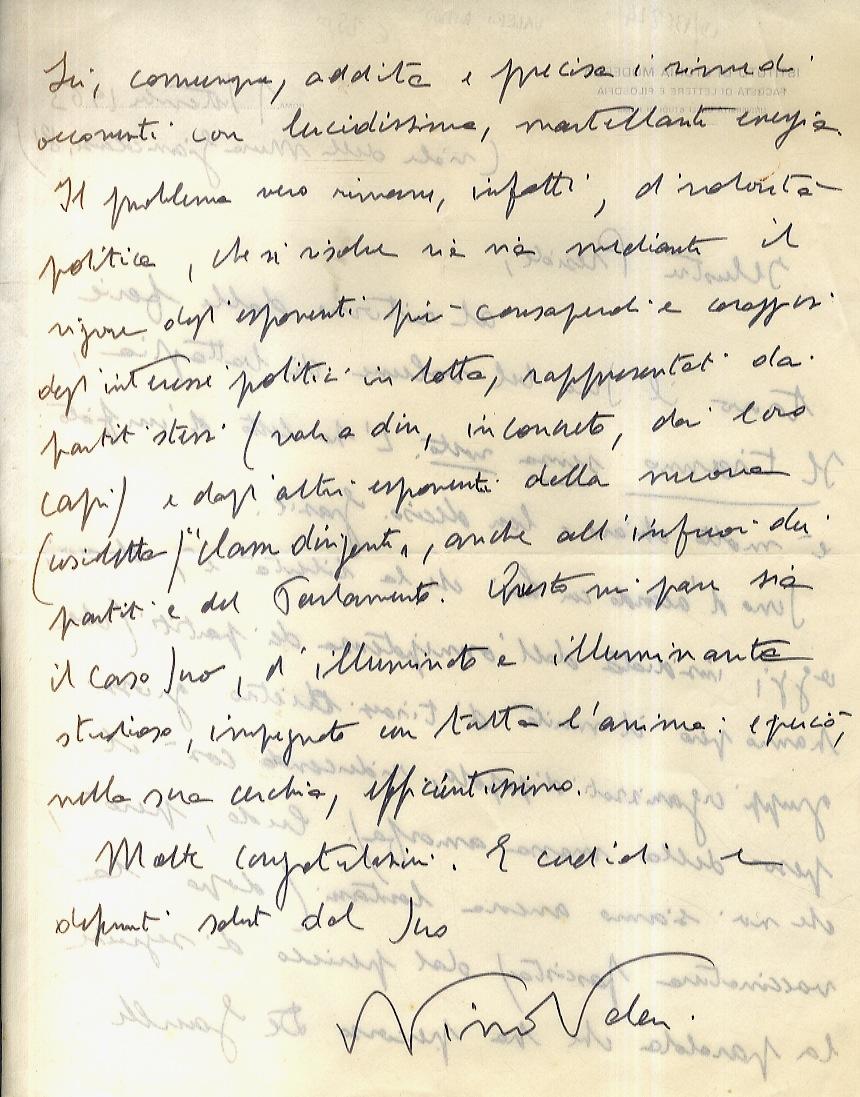 Lei, comunque, addita e precisa i rimedi
occorrenti con lucidissima, martellante energia.
Il problema vero rimane, infatti, di volontà
politica, che si risolve via via mediante il
vigore degli esponenti più consapevoli e coraggiosi
degli interessi politici in lotta, rappresentati dai
partiti stessi (vale a dire, in concreto, dai loro
capi) e dagli altri esponenti della nuova
(cosidetta) "classe dirigente", anche all'infuori dei
partiti e del Parlamento. Questo mi pare sia
il caso Suo, d'illuminato e illuminante
studioso, impegnato con tutta l'anima: e perciò,
nella sua cerchia, efficientissimo.
Molte congratulazioni. E cordiali e
deferenti saluti dal Suo
Nino Valeri.